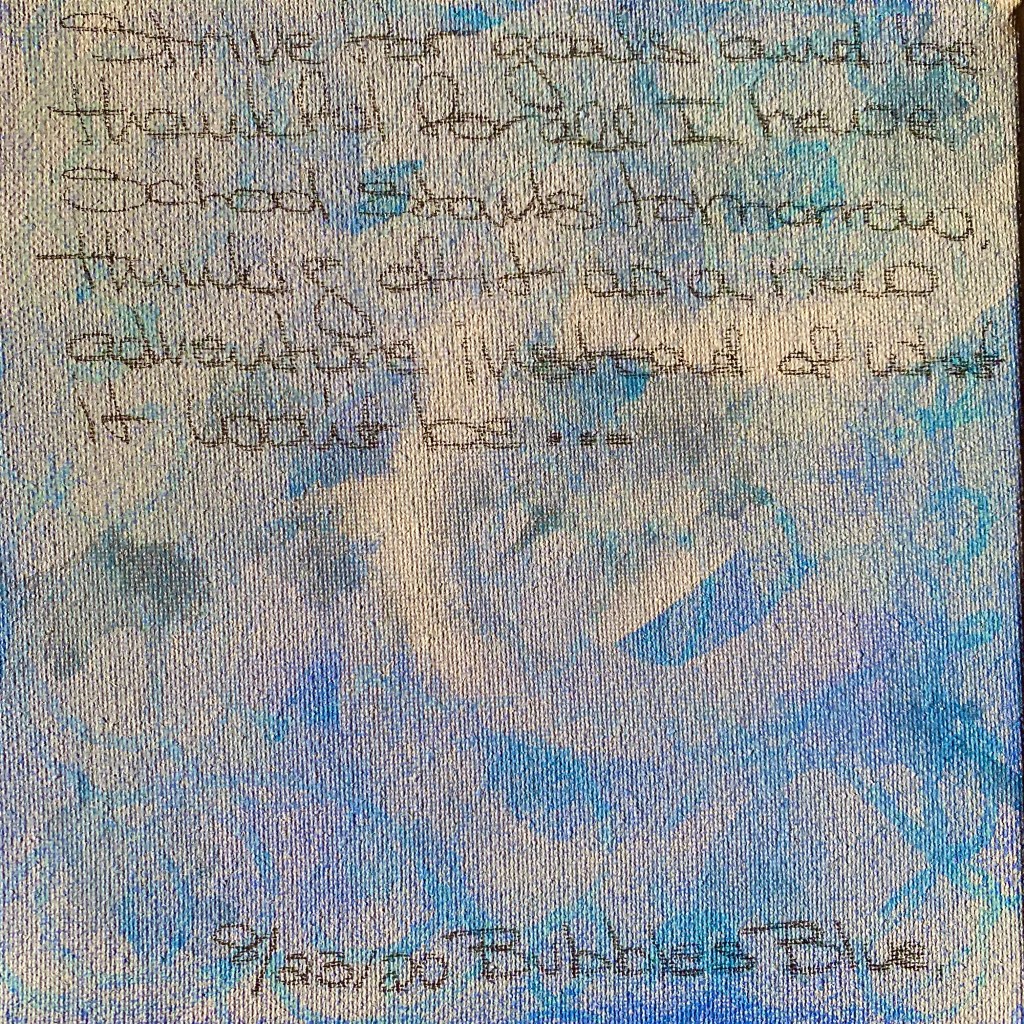 Strive for goals and be
thankful for all I have
School starts tomorrow,
thinking of it as a new
adventure instead of what
it would be...
9/22/20 Bubbles Blue,